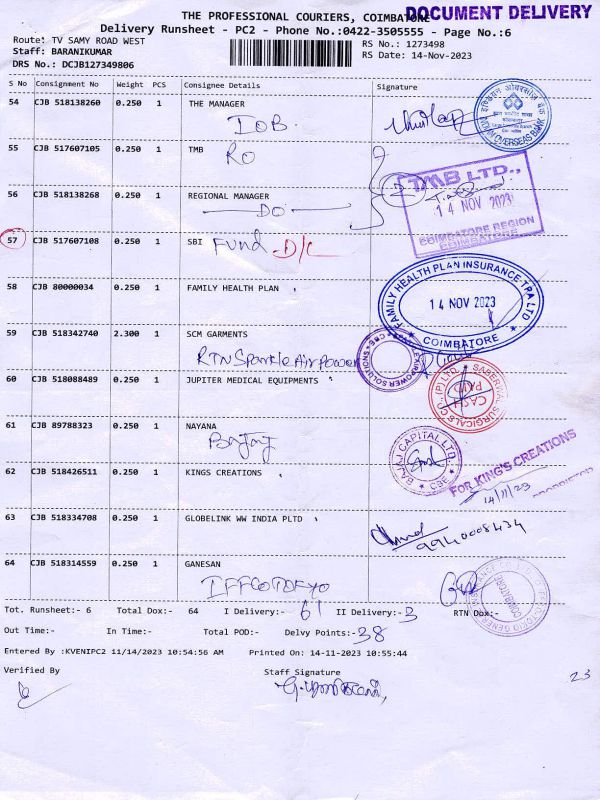 THE PROFESSIONAL COURIERS, COIMBATORE
DOCUMENT DELIVERY
Delivery Runsheet - PC2 - Phone No.:0422-3505555 - Page No.:6
Route: TV SAMY ROAD WEST
RS No.: 1273498
Staff: BARANIKUMAR
RS Date: 14-Nov-2023
DRS No.: DCJB127349806
S No Consignment No Weight PCS Consignee Details Signature
54 CJB 518138260 0.250 1 THE MANAGER
IOB
INDIAN OVERSEAS BANK
55 CJB 517607105 0.250 1 TMB
RO
TMB LTD.,
14 NOV 2023
COIMBATORE REGION
COIMBATORE
56 CJB 518138268 0.250 1 REGIONAL MANAGER
DO
57 CJB 517607108 0.250 1 SBI Fund D/C
58 CJB 80000034 0.250 1 FAMILY HEALTH PLAN
FAMILY HEALTH PLAN INSURANCE TPA LTD
14 NOV 2023
COIMBATORE
59 CJB 518342740 2.300 1 SCM GARMENTS
RTN Sparkle Air Power
60 CJB 518088489 0.250 1 JUPITER MEDICAL EQUIPMENTS
SABERWAL SURGICALS CO. (P) LTD.
CASH
PAID
61 CJB 89788323 0.250 1 NAYANA
Bajaj
BAJAJ CAPITAL LTD.
CBE
62 CJB 518426511 0.250 1 KINGS CREATIONS
FOR KING'S CREATIONS
14/11/23
PROPRIETOR
63 CJB 518334708 0.250 1 GLOBELINK WW INDIA PLTD
9940008434
64 CJB 518314559 0.250 1 GANESAN
IFFCO TOKYO
COIMBATORE
Tot. Runsheet:- 6 Total Dox:- 64 I Delivery:- 61 II Delivery:- 3 RTN Dox:-
Out Time:- In Time:- Total POD:- Delvy Points:- 38
Entered By :KVENIPC2 11/14/2023 10:54:56 AM Printed On: 14-11-2023 10:55:44
Verified By Staff Signature
23